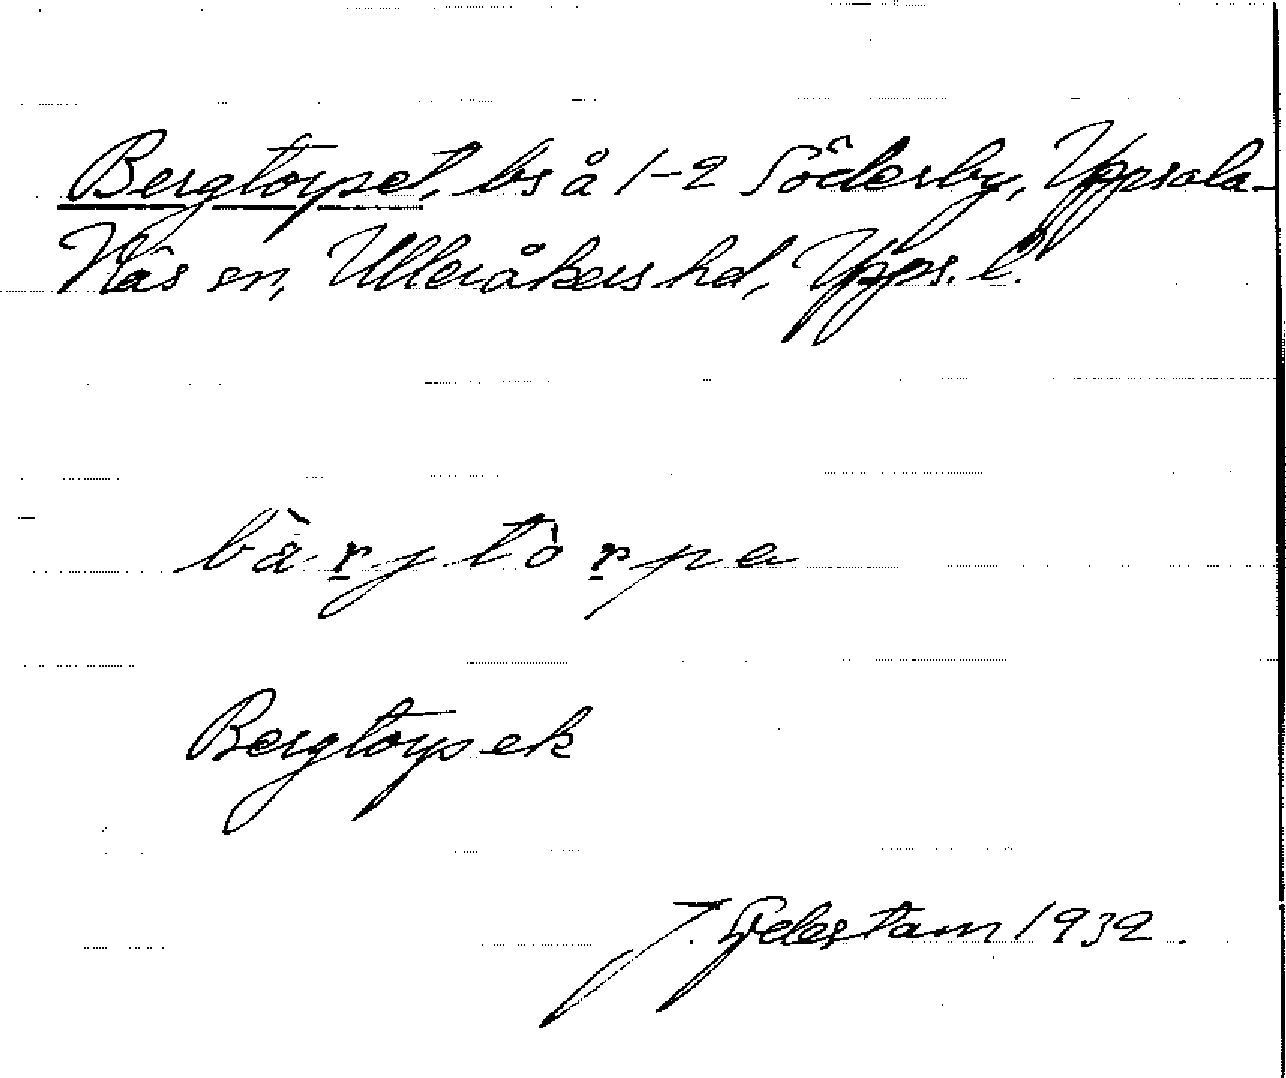 Bergtorpet, bs å 1-2 Söderby, Uppsala-
Näs sn, Ulleråkers hd, Upps. l.
bä̀rjtòrpa
Bergtorp ek
J. Gdestam 1932.